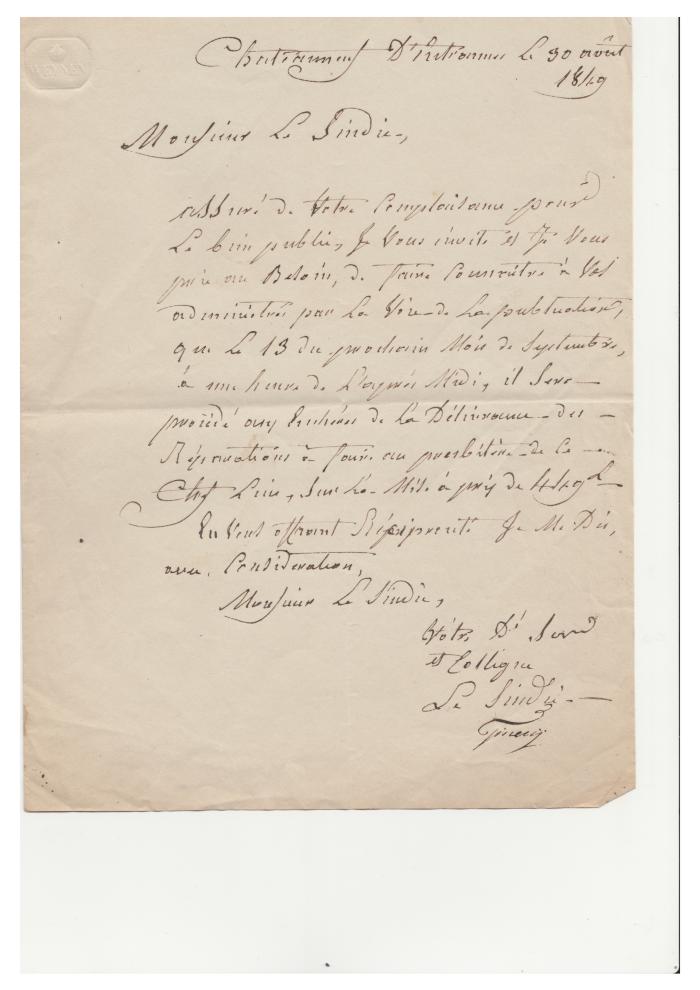 Chateauneuf D'Entraunes Le 30 août
1849
Monsieur Le Sindic,
assuré de Votre Complaisance pour
Le bien public, Je Vous invite et Je Vous
prie au Besoin, de faire Connaitre à Vos
administrés par La Voie de La publication,
que Le 13 du prochain Mois de Septembre,
à une heure de L'aprés Midi, il Sera
procédé aux Enchéres de La Délivrance des
Réparations à faire au presbitére de Ce
Chef Lieu, Sur La Mise à prix de 449 L
En Vous offrant Réciprocité Je Me Dis,
avec Considération,
Monsieur Le Sindic,
Vôtre Dt Servr
et Collégue
Le Sindic